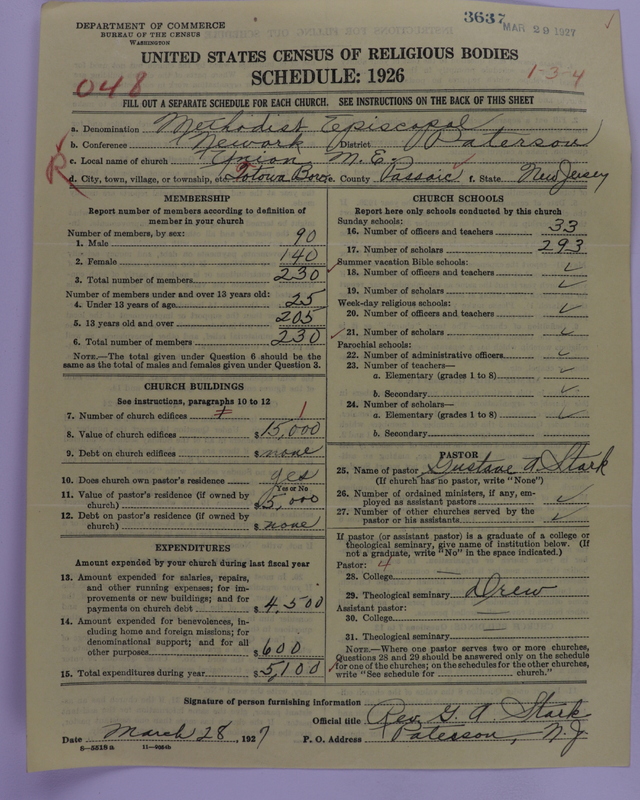 DEPARTMENT OF COMMERCE
BUREAU OF THE CENSUS
WASHINGTON
3637
MAR 29 1927
UNITED STATES CENSUS OF RELIGIOUS BODIES
SCHEDULE: 1926
048
1-3-4
FILL OUT A SEPARATE SCHEDULE FOR EACH CHURCH. SEE INSTRUCTIONS ON THE BACK OF THIS SHEET
a. Denomination Methodist Episcopal
b. Conference Newark District Paterson
c. Local name of church Union M.E.
d. City, town, village, or township, etc. Totowa Boro e. County Passaic f. State New Jersey
R
MEMBERSHIP
Report number of members according to definition of
member in your church
Number of members, by sex:
1. Male 90
2. Female 140
3. Total number of members 230
Number of members under and over 13 years old:
4. Under 13 years of age 25
5. 13 years old and over 205
6. Total number of members 230
NOTE.—The total given under Question 6 should be
same as the total of males and females given under Question 3.
CHURCH BUILDINGS
See instructions, paragraphs 10 to 12
7. Number of church edifices 1
8. Value of church edifices $ 15,000
9. Debt on church edifices $ none
10. Does church own pastor's residence yes
Yes or No
11. Value of pastor's residence (if owned by
church) $ 5,000
12. Debt on pastor's residence (if owned by
church) $ none
EXPENDITURES
Amount expended by your church during last fiscal year
13. Amount expended for salaries, repairs,
and other running expenses; for im-
provements or new buildings; and for
payments on church debt $ 4,500
14. Amount expended for benevolences, in-
cluding home and foreign missions; for
denominational support; and for all
other purposes $ 600
15. Total expenditures during year $ 5,100
CHURCH SCHOOLS
Report here only schools conducted by this church
Sunday schools:
16. Number of officers and teachers 33
17. Number of scholars 293
Summer vacation Bible schools:
18. Number of officers and teachers ✓
19. Number of scholars ✓
Week-day religious schools:
20. Number of officers and teachers ✓
21. Number of scholars ✓
Parochial schools:
22. Number of administrative officers ✓
23. Number of teachers—
a. Elementary (grades 1 to 8) ✓
b. Secondary ✓
24. Number of scholars—
a. Elementary (grades 1 to 8) ✓
b. Secondary
PASTOR
25. Name of pastor Gustave A. Stark
(If church has no pastor, write "None")
26. Number of ordained ministers, if any, em-
ployed as assistant pastors ✓
27. Number of other churches served by the
pastor or his assistants ✓
If pastor (or assistant pastor) is a graduate of a college or
theological seminary, give name of institution below. (If
not a graduate, write "No" in the space indicated.)
Pastor: 4
28. College —
29. Theological seminary Drew
Assistant pastor:
30. College
31. Theological seminary —
NOTE.—Where one pastor serves two or more churches,
Questions 28 and 29 should be answered only on the schedule
for one of the churches; on the schedules for the other churches,
write "See schedule for church."
Signature of person furnishing information
Official title Rev. G. A Stark
Date March 28, 1927 P. O. Address Paterson, N.J.